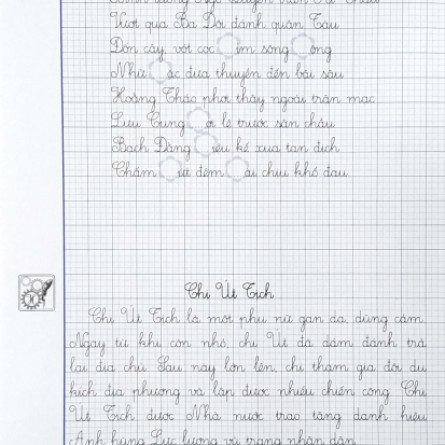 Vượt qua Ba Dội đánh quân Tàu
Đốn cây, vót cọc ìm sông ồng
Nhử ặc đưa thuyền đến bãi sâu
Hoằng Tháo phơi thây ngoài trận mạc
Lưu Cung ơi lệ trước sân chầu
Bạch Đằng iệu kế xua tan địch
Chị Út Tịch
Chị Út Tịch là một phụ nữ gan dạ, dũng cảm.
Ngay từ khi còn nhỏ, chị Út đã dám đánh trả
lại địa chủ. Sau này lớn lên, chị tham gia đội du
kích địa phương và lập được nhiều chiến công. Chị
Út Tịch được Nhà nước trao tặng danh hiệu
Anh hùng Lực lượng vũ trang nhân dân.